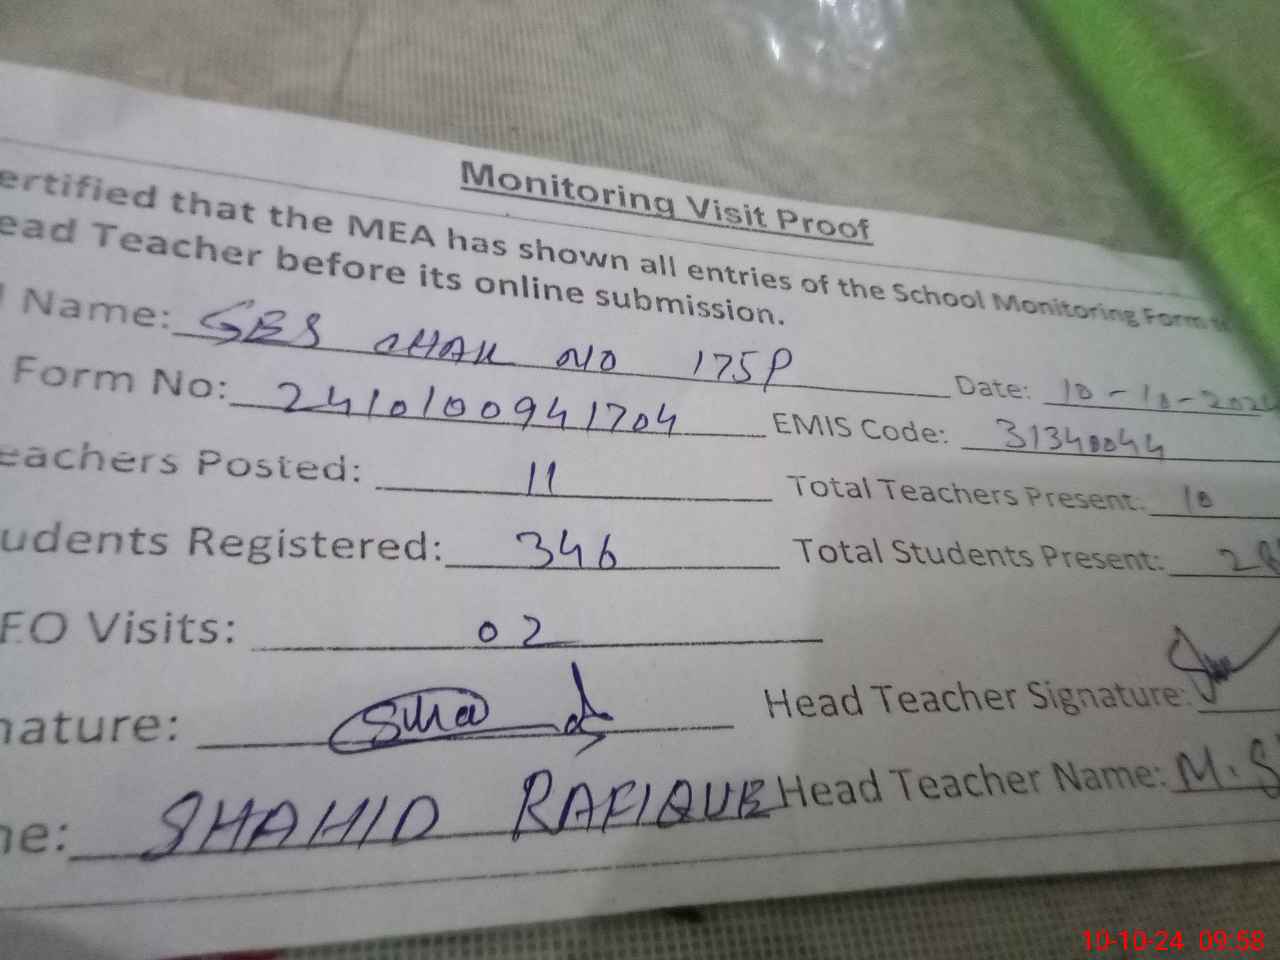 Monitoring Visit Proof
ertified that the MEA has shown all entries of the School Monitoring Form to
ead Teacher before its online submission.
l Name: GES CHAK NO 175P Date: 10-10-2024
Form No: 2410100941704 EMIS Code: 31340044
eachers Posted: 11 Total Teachers Present: 10
udents Registered: 346 Total Students Present: 28
EO Visits: 02
nature: Head Teacher Signature:
ne: SHAHID RAFIQUE Head Teacher Name: M.S
10-10-24 09:58